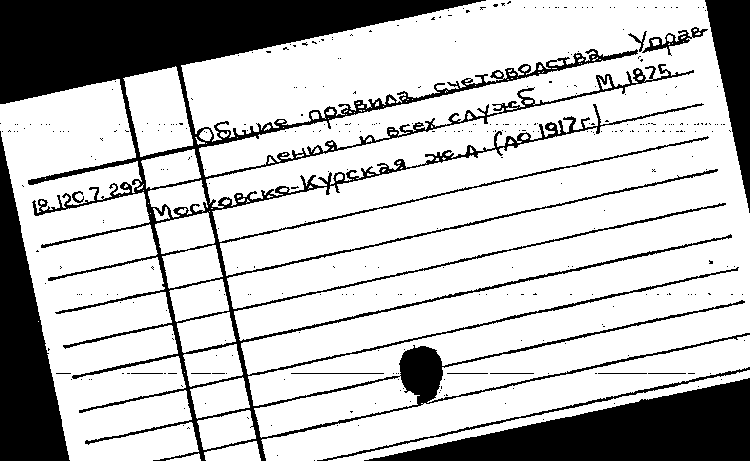 Общие правила счетоводства Управ-
ления и всех служб. М., 1875.
18.120.7.292
Московско-Курская ж.д. (до 1917 г.)